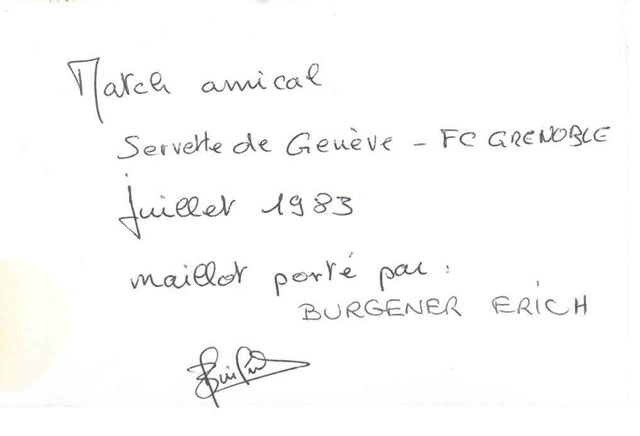 Match amical
Servette de Genève - FC GRENOBLE
juillet 1983
maillot porté par :
BURGENER ERICH